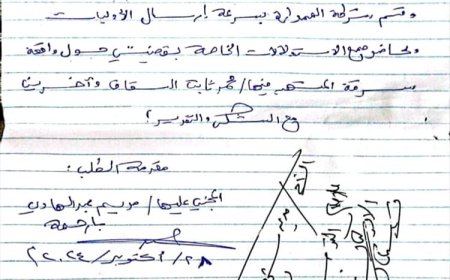 وقسم شرطة المعمدانة بسرعة إرسال الأوليات
ومحاضر جمع الاستدلالات الخاصة بقضيتي حول واقعة
سرقة المتهم فيها/ عمر ثابت السقاف وآخرين
مع الشكر والتقدير؛
مقدمة الطلب:
المجني عليها/ مريم عبدالهادي
بارحمة
٢٨/أكتوبر/٢٠٢٤م